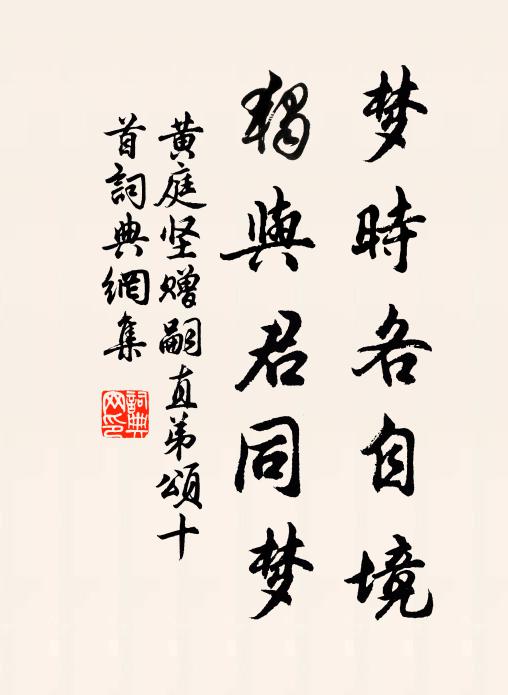 梦時各自境
獨與君同梦
黄庭坚赠嗣直弟颂十
首詞典網集
詞典网印